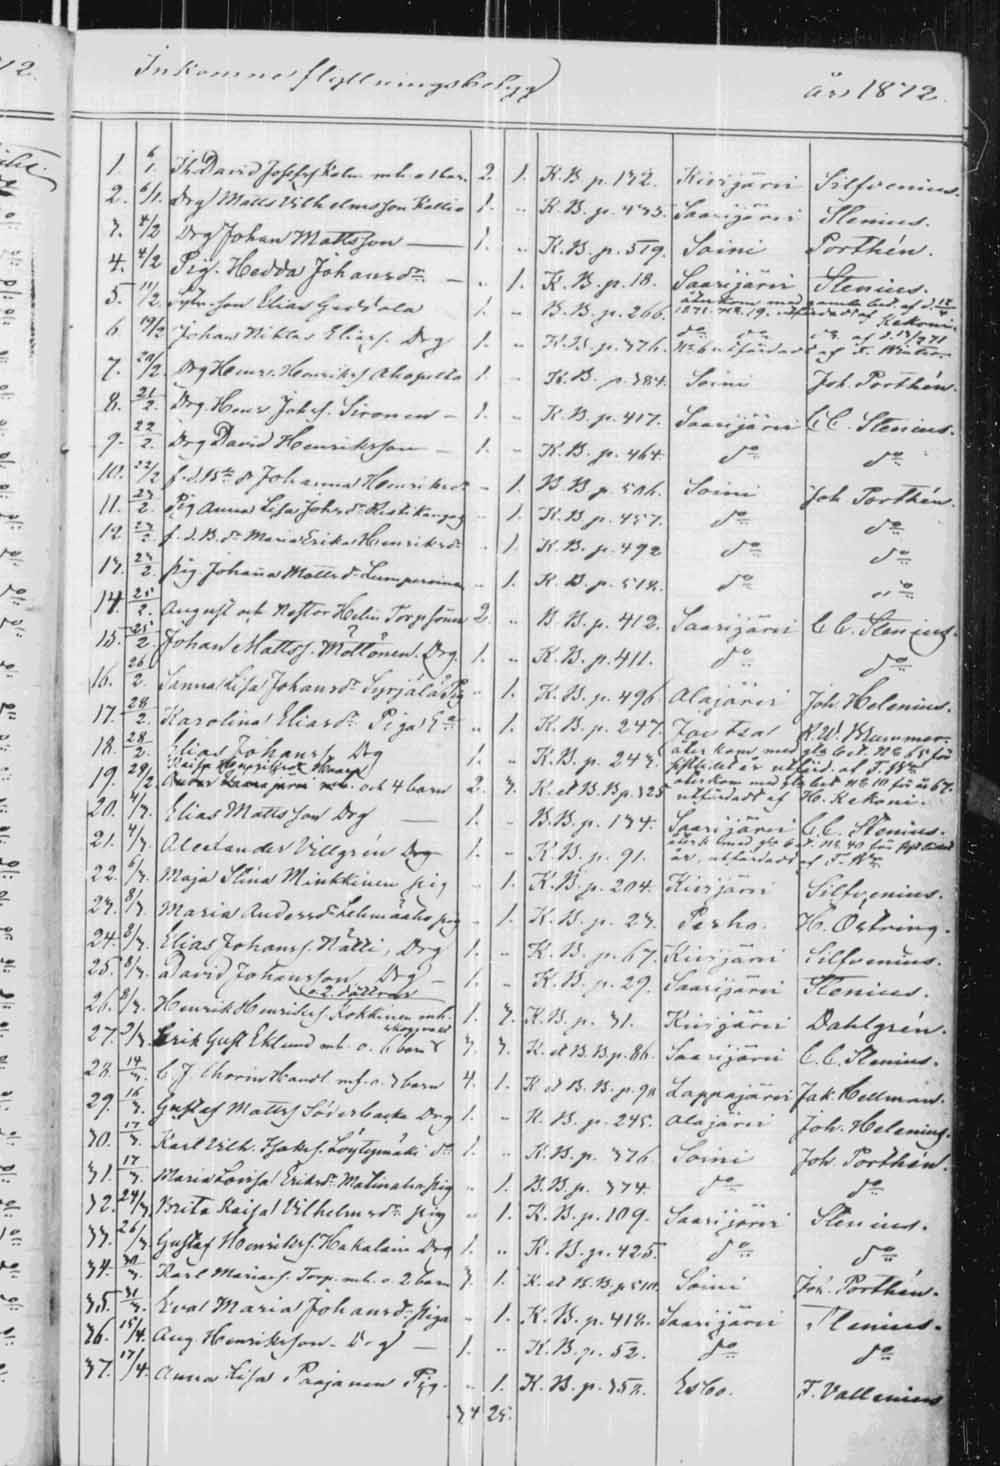 Inkomne flyttningsbetyg år 1872.
1. 6/1. David Josefss. m. h. o. 1 barn 2. 1. K.B. p. 132. Kivijärvi Silfvenius.
2. 6/1. Drg Matts Vilhelmsson Kallio 1. " K.B. p. 473. Saarijärvi Stenius.
3. 4/2 Drg Johan Mattsson — 1. " K.B. p. 519. Soini Porthén.
4. 4/2 Pig. Hedda Johansdr — " 1. K.B. p. 18. Saarijärvi Stenius.
5. 11/2 Elias 1. " B.B. p. 266. återkom med gamla bet. af d. 12/4
1871. utfärdadt af Kekoni.
6. 19/2 Johan Niklas Eliass. Drg 1. " K.B. p. 376. do do
No 6 utfärdadt af F.
7. 20/2 Drg Henr. Henrikss. Ahopelto 1. " K.B. p. 384. Soini Joh. Porthén.
8. 21/2. Drg. Henr. Johss. Sironen — 1. " K.B. p. 417. Saarijärvi C.C. Stenius.
9. 22/2. Drg David Henriksson — 1. " K.B. p. 464. do do
10. 22/2 f.d. Bde dr Johanna Henriksdr " 1. B.B. p. 506. Soini Joh. Porthén.
11. 23/2. Pig Anna Lisa Johsdr Ristikangas " 1. K.B. p. 457. do do
12. 23/2. f.d. B. dr Maria Erika Henriksdr " 1. K.B. p. 492 do do
13. 23/2. pig Johanna Mattsdr " 1. K.B. p. 512. do do
14. 25/2. August och Nestor Helin Torpsöner 2. " B.B. p. 412. Saarijärvi C.C. Stenius.
15. 25/2. Johan Mattss. Möttönen. Drg. 1. " K.B. p. 411. do do
16. 26/2. Sanna Lisa Johansdr Syrjälä Pig " 1. K.B. p. 496 Alajärvi Joh. Helenius.
17. 28/2. Karolina Eliasdr Piga " 1. K.B. p. 247. Joutsa K.W. Brummer.
18. 28/2. Elias Johanss. Drg 1. " K.B. p. 243. återkom med gla bet. No 65 för
utfärd. af F.
19. 29/2 och 4 barn 2. 3. K. et B.B. p. 325 återkom med gla bet No 10 för år 67.
utfärdadt af H. Kekoni.
20. 4/3. Elias Mattsson Drg — 1. " B.B. p. 134. Saarijärvi C.C. Stenius.
21. 4/3. Alexander Villgrén Drg 1. " K.B. p. 91. återk. med gla bet. No 40 för
år, utfärdadt af F.
22. 6/3. Maja Stina Minkkinen pig " 1. K.B. p. 204. Kivijärvi Silfvenius.
23. 8/3. Maria Andersdr Lehmäaho pig " 1. K.B. p. 23. Perho. H. Östring.
24. 8/3. Elias Johanss. Nätti, Drg 1. " K.B. p. 67. Kivijärvi Silfvenius.
25. 8/3. David Johansson, Drg — 1. " K.B. p. 29. Saarijärvi Stenius.
o. 2 döttrar
26. 8/3. Henrik Henrikss. Kokkinen m.h. 1. 3. K.B. p. 31. Kivijärvi Dahlgrén.
27. 9/3. Erik Gust Eklund m.h. o. 4 barn 3. 3. K. et B.B. p. 86. Saarijärvi C.C. Stenius.
28. 14/3. C.J. Thorin Handl. m.h. o. 3 barn 4. 1. K et B.B. p. 90 Lappajärvi Jak. Hellman.
29. 16/3. Gustaf Mattss Söderbacka Drg 1. " K.B. p. 245. Alajärvi Joh. Helenius.
30. 17/3. Karl Vilh. Isakss. Löytymäki dr 1. " K.B. p. 376. Soini Joh. Porthén.
31. 17/3. Maria Lovisa Eriksdr Matinaho pig " 1. B.B. p. 374. do do
32. 24/3. Brita Kaisa Vilhelmsdr pig " 1. K.B. p. 109. Saarijärvi Stenius.
33. 26/3. Gustaf Henrikss. Hakalain Drg 1. " K.B. p. 425. do do
34. 30/3. Karl Mariass. Torp. m.h. o. 2 barn 3. 1. K. et B.B. p. 510. Soini Joh. Porthén.
35. 31/3. Eva Maria Johansdr Piga " 1. K.B. p. 418. Saarijärvi Stenius.
36. 15/4. Aug. Henriksson. Drg — 1. " K.B. p. 52. do do
37. 17/4. Anna Lisa Paajanen Pig. " 1. K.B. p. 352. Esbo. F. Vallenius
34 25.